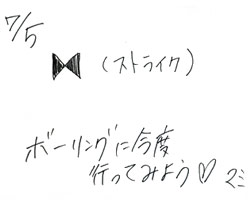 7/5
⧓ (ストライク)
ボーリングに今度
行ってみよう♡ マミ